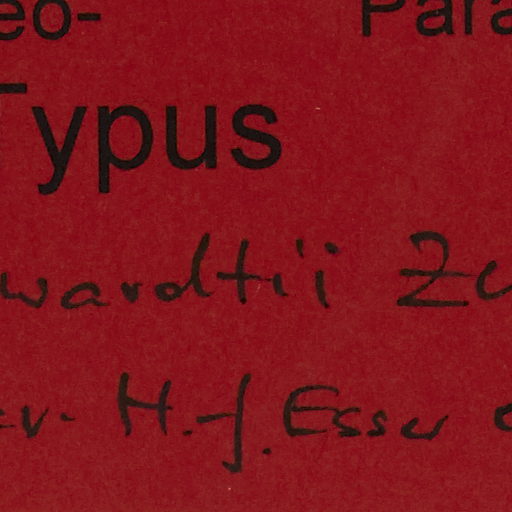 eo- Para
Typus
wardtii Zu
ev. H.-J. Esser